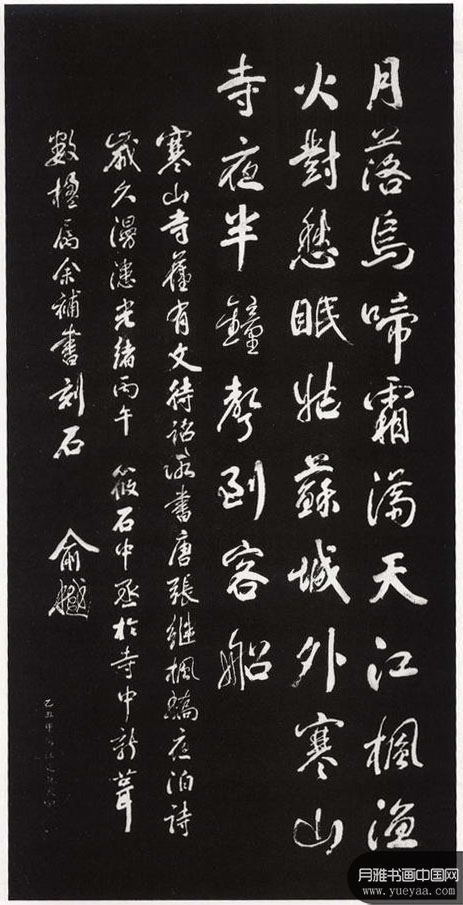 月落烏啼霜滿天江楓漁
火對愁眠姑蘇城外寒山
寺夜半鐘聲到客船
寒山寺舊有文待詔所書唐張繼楓橋夜泊詩
歲久漫漶光緒丙午 筱石中丞於寺中新葺
數楹屬余補書刻石 俞樾
月雅书画中国网
www.yueyaa.com